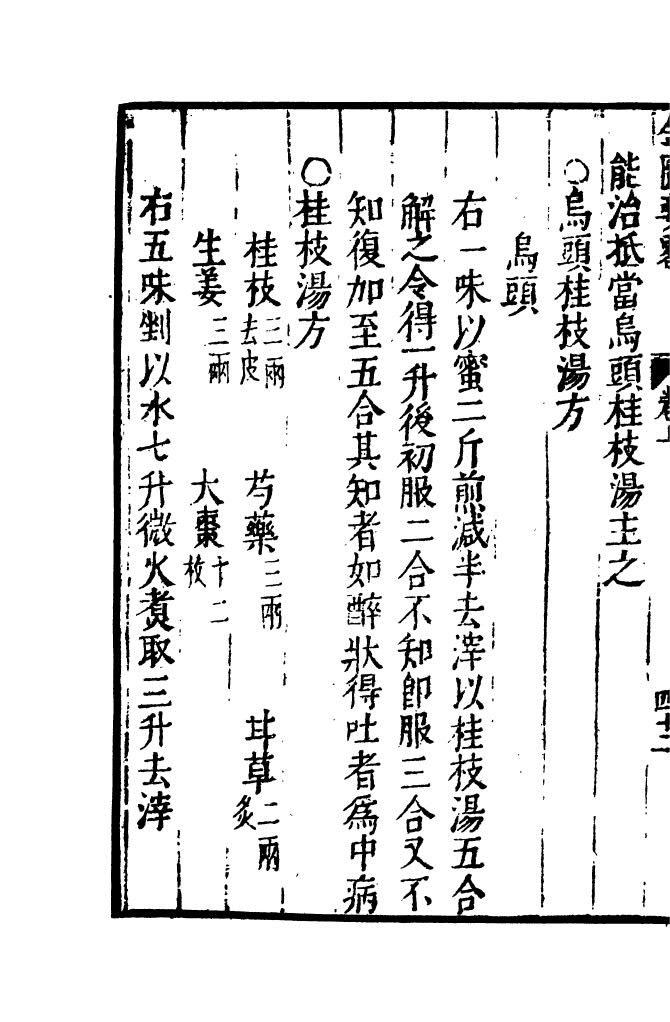 能治抵當烏頭桂枝湯主之
○烏頭桂枝湯方
烏頭
右一味以蜜二斤煎減半去滓以桂枝湯五合
解之令得一升後初服二合不知卽服三合又不
知復加至五合其知者如醉狀得吐者爲中病
○桂枝湯方
桂枝三兩去皮 芍藥三兩 甘草二兩炙
生姜三兩 大棗十二枚
右五味剉以水七升微火煑取三升去滓